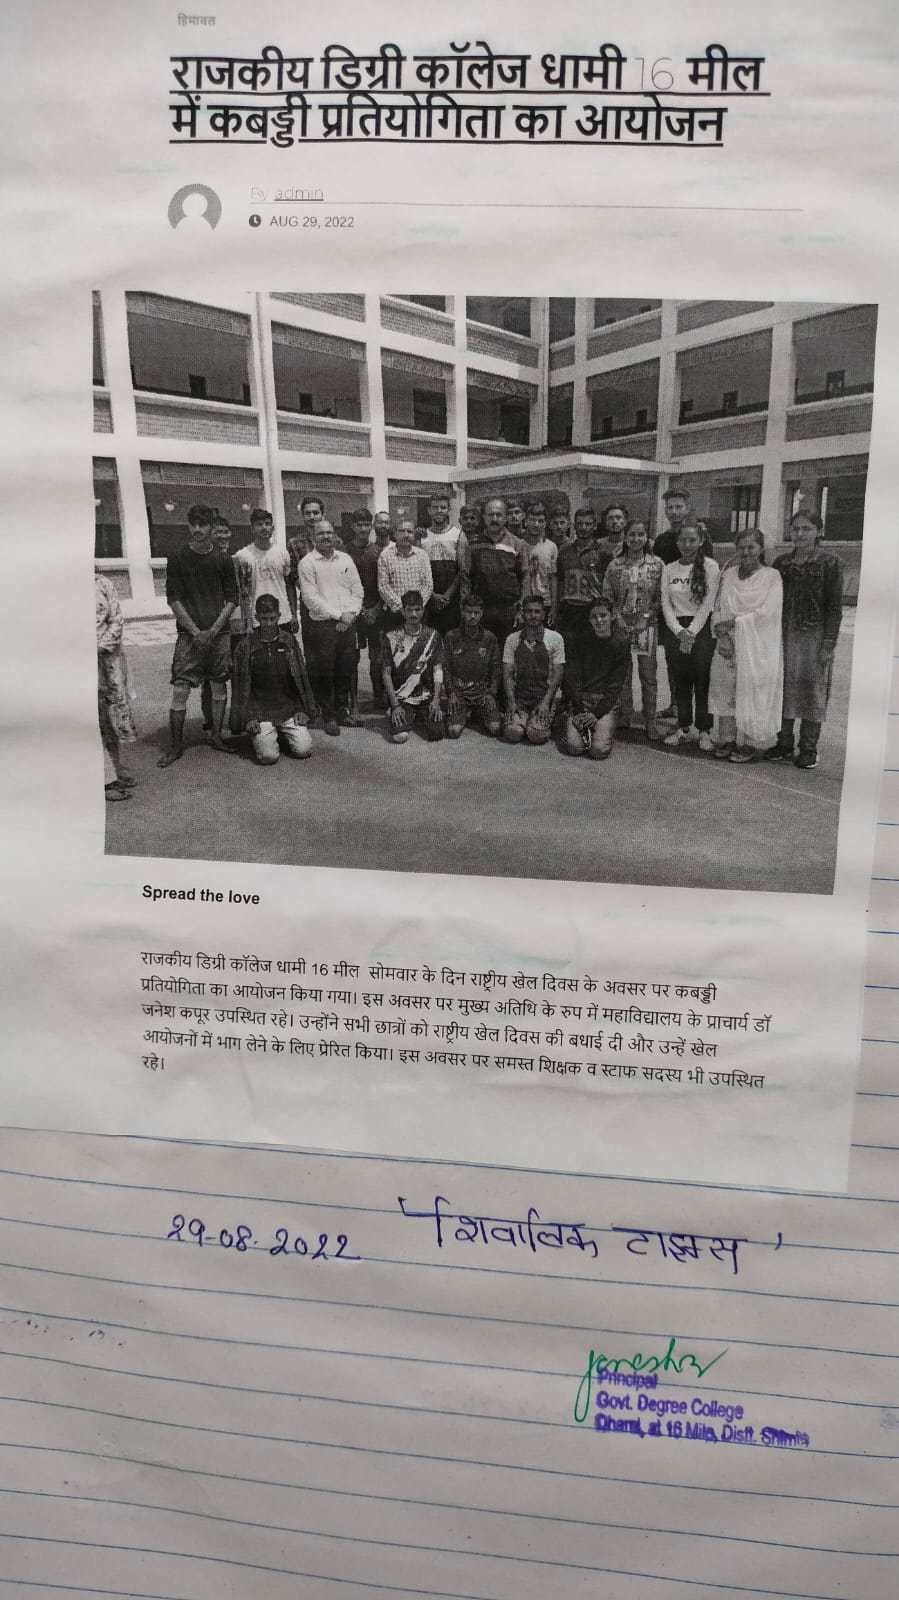 हिमाचल
राजकीय डिग्री कॉलेज धामी 16 मील
में कबड्डी प्रतियोगिता का आयोजन
By admin
AUG 29, 2022
Levi's
Spread the love
राजकीय डिग्री कॉलेज धामी 16 मील सोमवार के दिन राष्ट्रीय खेल दिवस के अवसर पर कबड्डी
प्रतियोगिता का आयोजन किया गया। इस अवसर पर मुख्य अतिथि के रुप में महाविद्यालय के प्राचार्य डॉ
जनेश कपूर उपस्थित रहे। उन्होंने सभी छात्रों को राष्ट्रीय खेल दिवस की बधाई दी और उन्हें खेल
आयोजनों में भाग लेने के लिए प्रेरित किया। इस अवसर पर समस्त शिक्षक व स्टाफ सदस्य भी उपस्थित
रहे।
29-08-2022 'शिवालिक टाइम्स'
Principal
Govt. Degree College
Dhami, at 16 Mile, Distt. Shimla